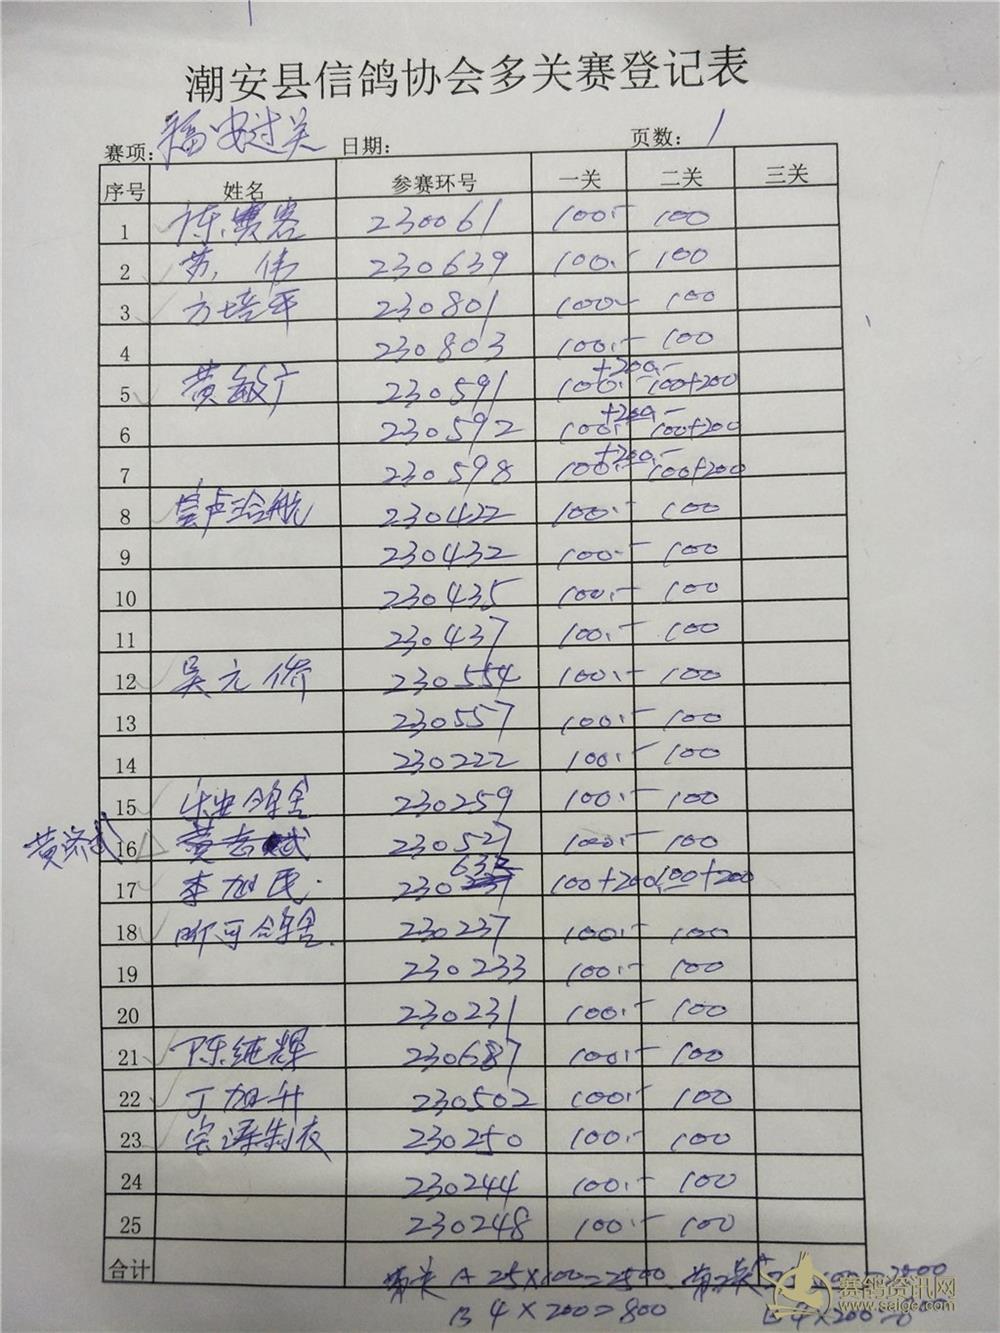 潮安县信鸽协会多关赛登记表
赛项: 福安过关 日期: 页数: 1
序号 姓名 参赛环号 一关 二关 三关
1 陈赛容 230061 100.- 100
2 苏伟 230639 100.- 100
3 方培平 230801 100- 100
4 230803 100.- 100
5 黄敏广 230591 100.- +200.- 100+200
6 230592 100.- +200.- 100+200
7 230598 100.- +200.- 100+200
8 230422 100.- 100
9 230432 100.- 100
10 230435 100.- 100
11 230437 100.- 100
12 吴元侨 230554 100.- 100
13 230557 100.- 100
14 230222 100.- 100
15 乐业鸽舍 230259 100.- 100
16 230527 100.- 100
17 李旭民. 230 632 100+200 100+200
18 昕可鸽舍. 230237 100.- 100
19 230233 100.- 100
20 230231 100.- 100
21 陈纯辉 230687 100.- 100
22 丁旭升 230502 100.- 100
23 230250 100.- 100
24 230244 100.- 100
25 230248 100.- 100
合计 A 25×100=2500
B 4×200=800
赛鸽资讯网
www.saige.com